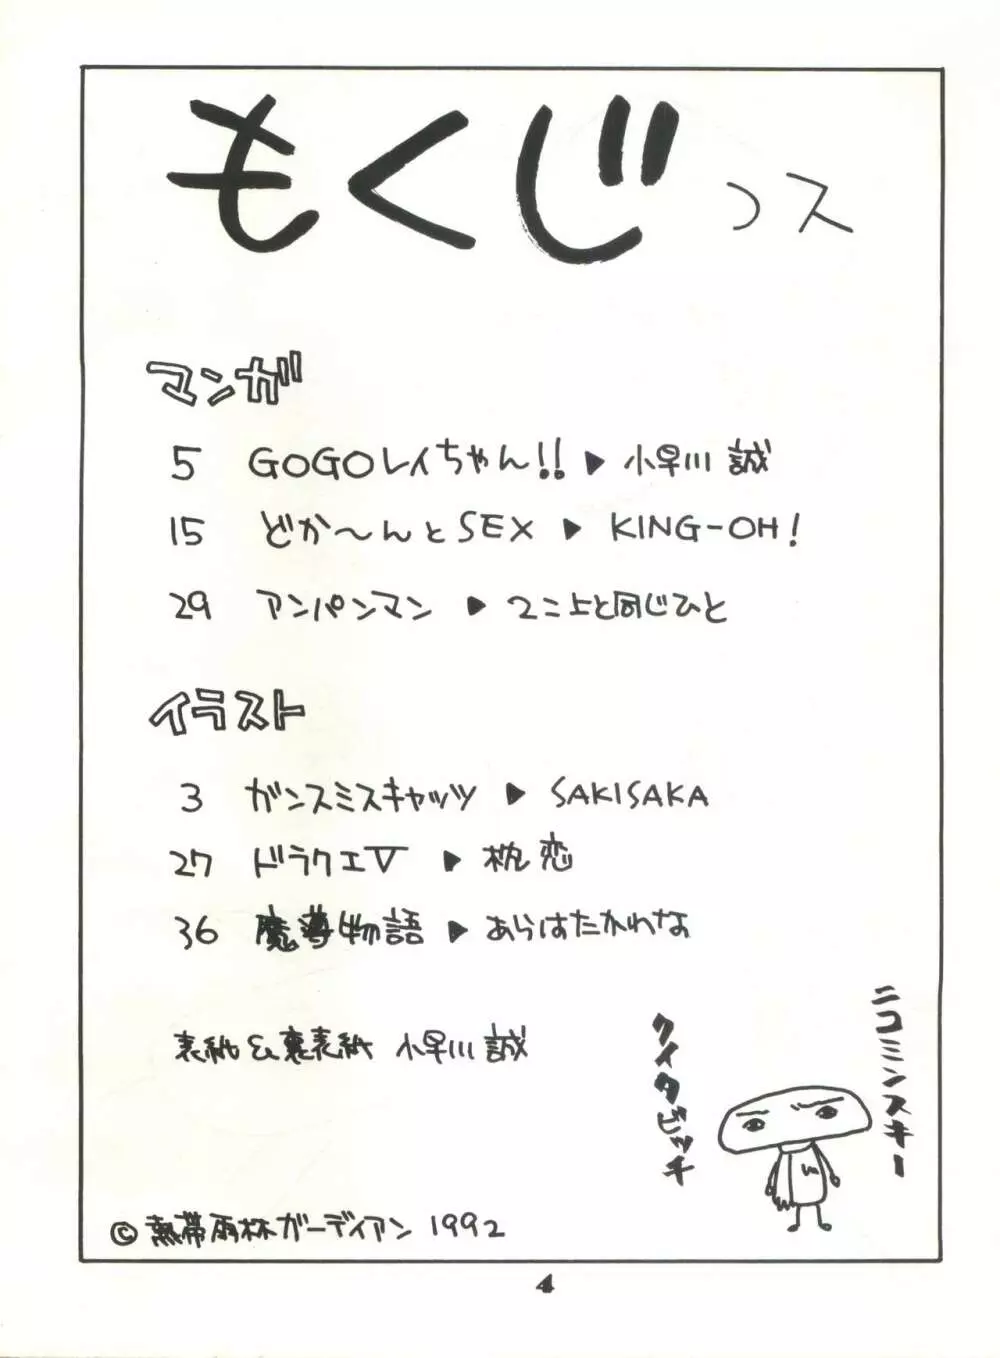 もくじ
コス
マンガ
5 GOGOレイちゃん!! ▶ 小早川 誠
15 どか〜んとSEX ▶ KING-OH!
29 アンパンマン ▶ 2コ上と同じひと
イラスト
3 ガンスミスキャッツ ▶ SAKISAKA
27 ドラクエV ▶ 枕恋
36 魔導物語 ▶ あらはたかれな
表紙&裏表紙 小早川 誠
ニコミンスキー
クイタビッチ
© 熱帯雨林ガーディアン 1992
4